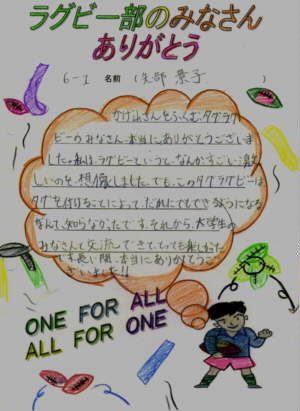 ラグビー部のみなさん
ありがとう
6-1 名前 (矢部 景子 )
かげ山さんをふくむタグラグ
ビーのみなさん、本当にありがとうございま
した。私は、ラグビーというと、なんかすごい激
しいのを想像しました。でも、このタグラグビーは
タグを付けることによって、だれにでもできるようになる
なんて、知らなかったです。それから、大学生の
みなさんと交流できて、とっても楽しかった
です。長い間、本当にありがとうご
ざいました!!
ONE FOR ALL
ALL FOR ONE